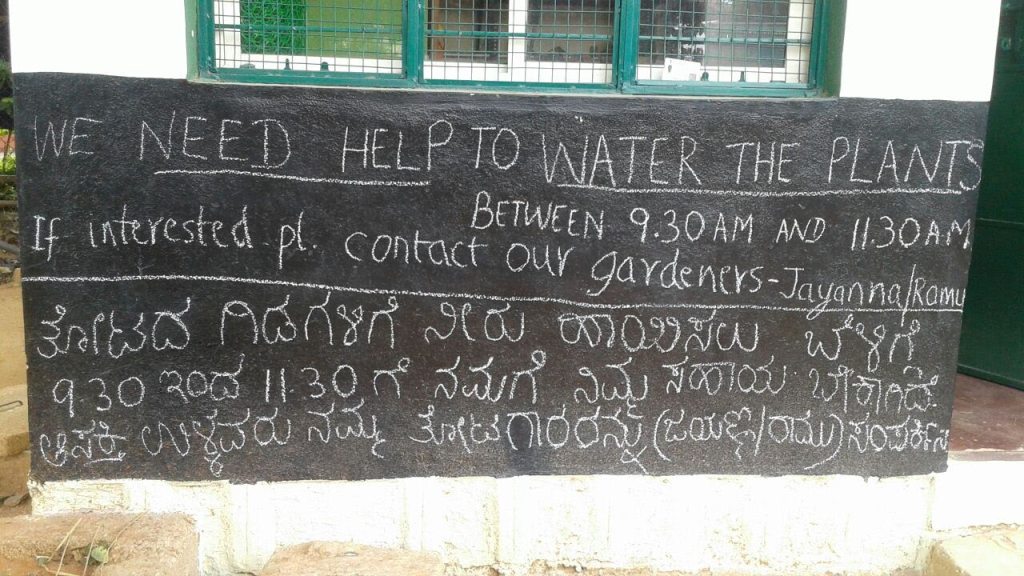 WE NEED HELP TO WATER THE PLANTS
BETWEEN 9.30AM AND 11.30AM
If interested pl. contact our gardeners-Jayanna/Ramu
ತೋಟದ ಗಿಡಗಳಿಗೆ ನೀರು ಹಾಯಿಸಲು ಬೆಳಿಗ್ಗೆ
9.30 ಇಂದ 11.30 ಗೆ ನಮಗೆ ನಿಮ್ಮ ಸಹಾಯ ಬೇಕಾಗಿದೆ.
ಆಸಕ್ತಿ ಉಳ್ಳವರು ನಮ್ಮ ತೋಟಗಾರರನ್ನು (ಜಯಣ್ಣ/ರಾಮು)